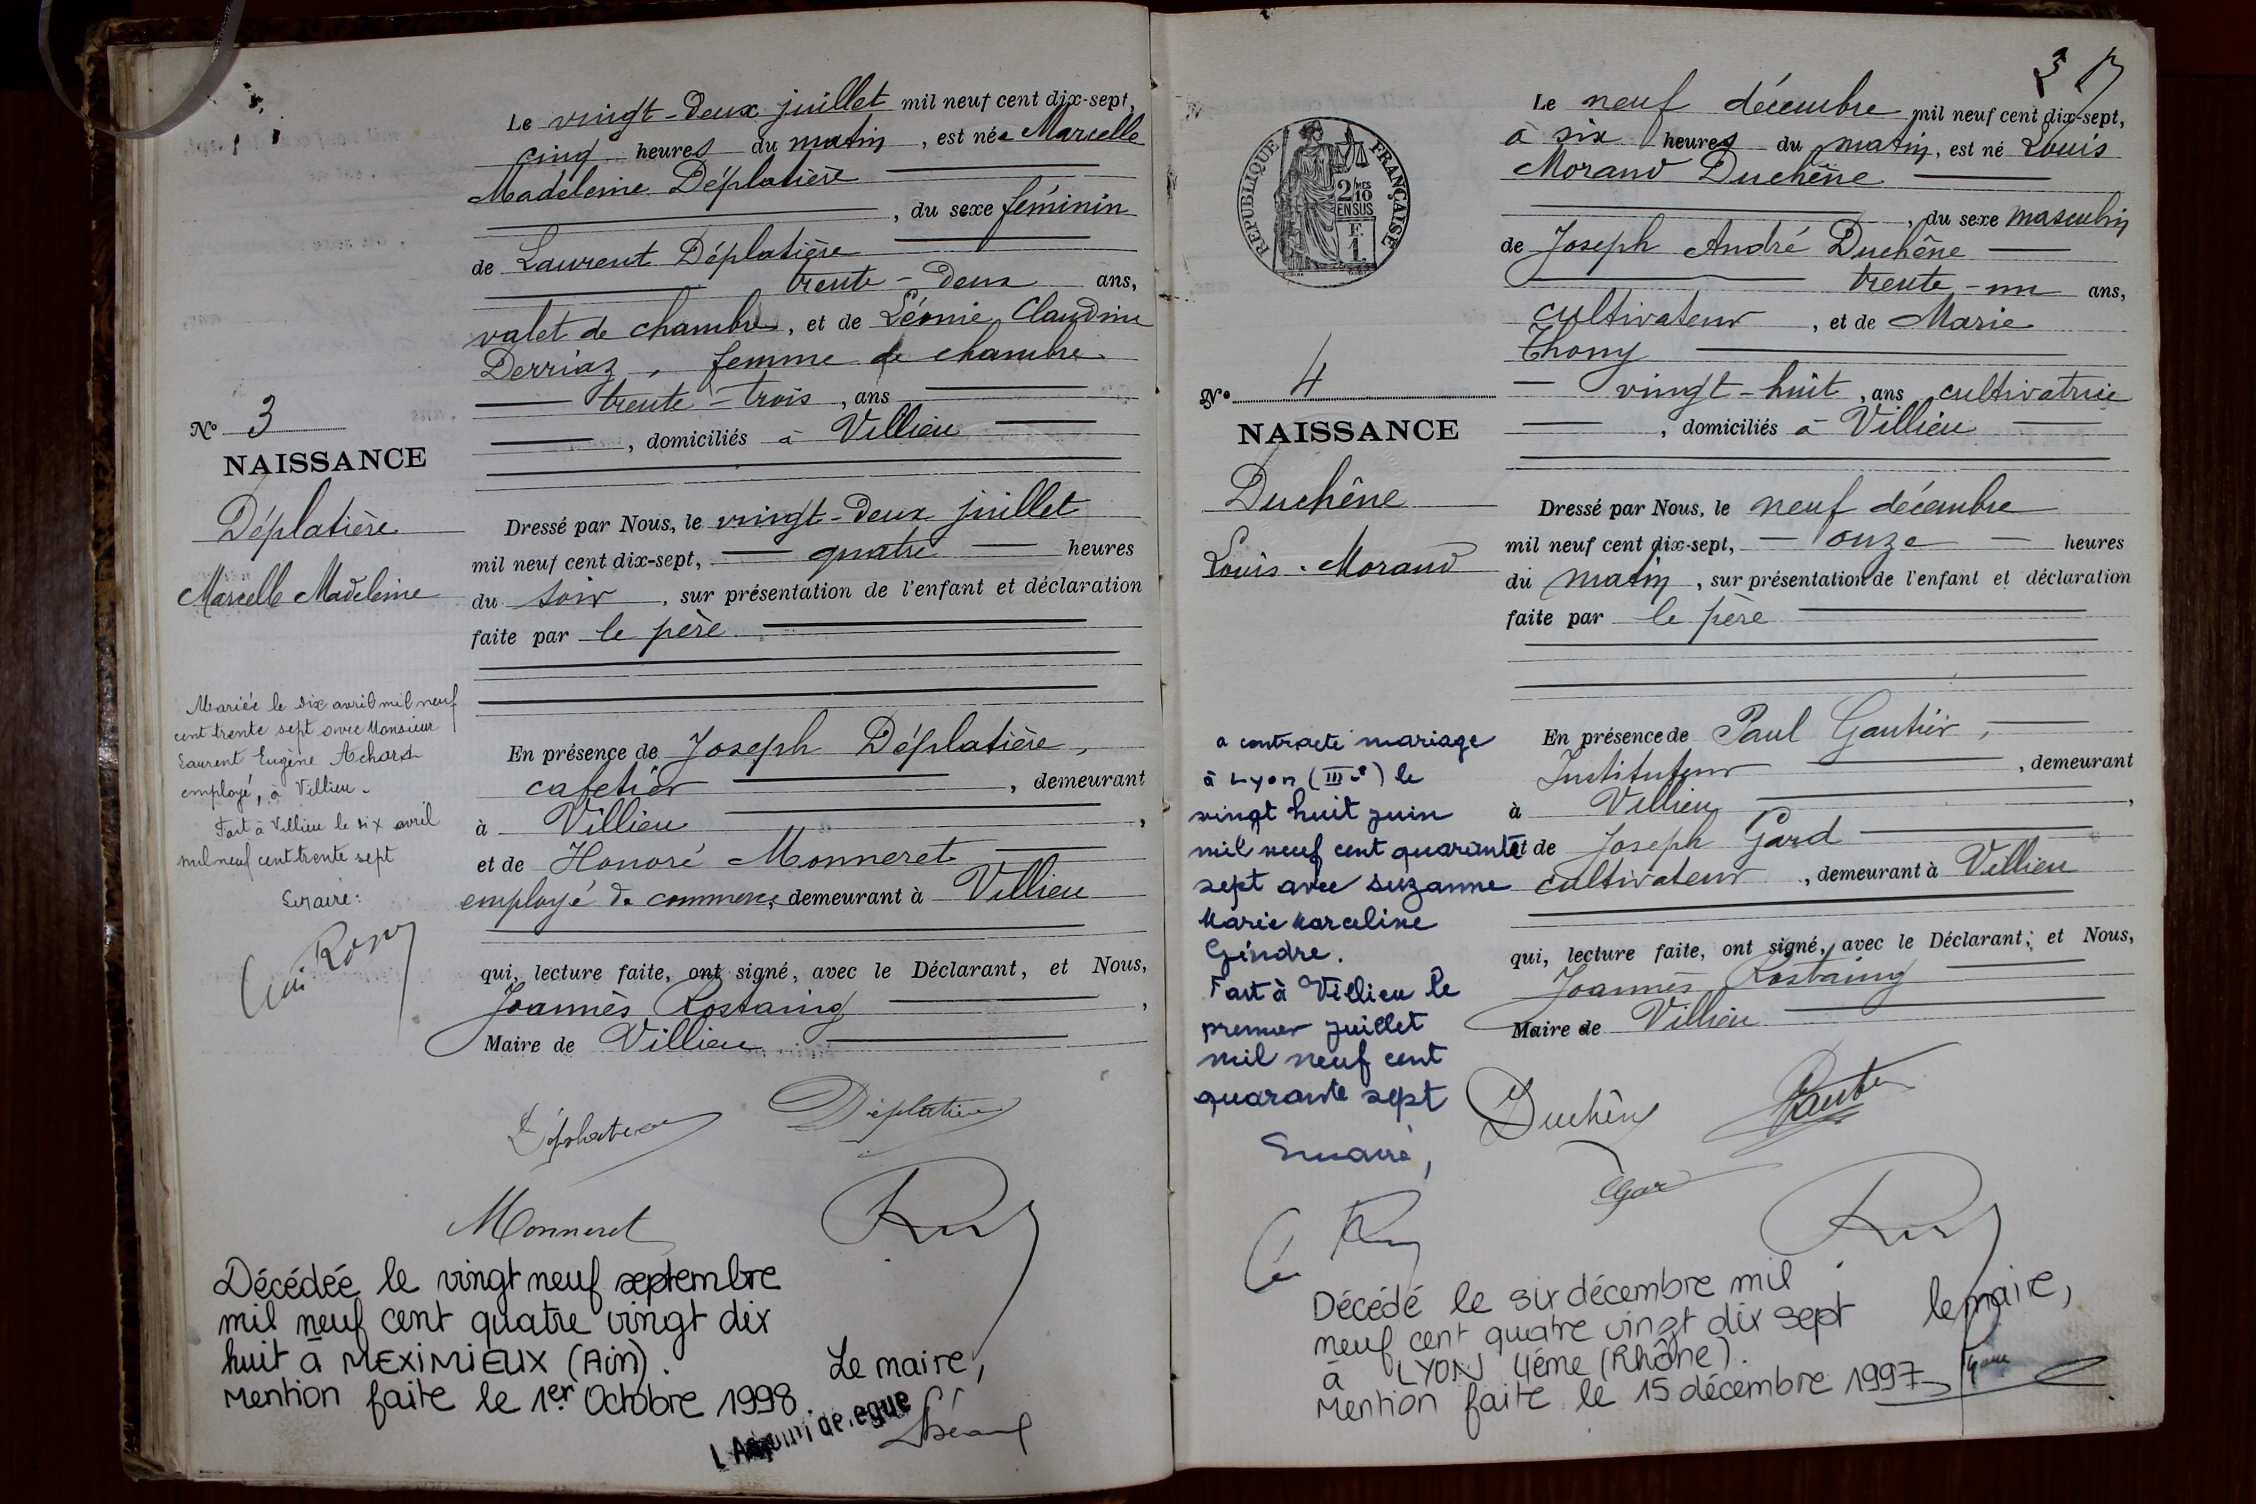 Le vingt-deux juillet mil neuf cent dix-sept,
cinq heures du matin, est née Marcelle
Madeleine Déplatière
, du sexe féminin
de Laurent Déplatière
trente-deux ans,
valet de chambre, et de Léonie Claudine
Derriaz, femme de chambre
trente-trois, ans
, domiciliés à Villieu
No 3
NAISSANCE
Déplatière
Marcelle Madeleine
Dressé par Nous, le vingt-deux juillet
mil neuf cent dix-sept, quatre heures
du soir, sur présentation de l'enfant et déclaration
faite par le père
Mariée le dix avril mil neuf
cent trente sept avec Monsieur
Laurent Eugène Achard
employé, à Villieu.
Fait à Villieu le dix avril
mil neuf cent trente sept
Le maire:
En présence de Joseph Déplatière,
cafetier, demeurant
à Villieu,
et de Honoré Monneret
employé de commerce, demeurant à Villieu
qui, lecture faite, ont signé, avec le Déclarant, et Nous,
Joannès Rostaing,
Maire de Villieu
Déplatière
Déplatière
Monneret
Décédée le vingt neuf septembre
mil neuf cent quatre vingt dix
huit à MEXIMIEUX (Ain).
Mention faite le 1er Octobre 1998.
Le maire,
L'Adjoint délégué
3
Le neuf décembre mil neuf cent dix-sept,
à six heures du matin, est né Louis
Morand Duchêne
, du sexe masculin
de Joseph André Duchêne
trente-un ans,
cultivateur, et de Marie
Thony
vingt-huit, ans cultivatrice
, domiciliés à Villieu
RÉPUBLIQUE FRANÇAISE
2/10 MES
EN SUS
F.
1
No 4
NAISSANCE
Duchêne
Louis. Morand
Dressé par Nous, le neuf décembre
mil neuf cent dix-sept, onze heures
du matin, sur présentation de l'enfant et déclaration
faite par le père
a contracté mariage
à Lyon (IIIe) le
vingt huit juin
mil neuf cent quarante
sept avec Suzanne
Marie Marceline
Gindre.
Fait à Villieu le
premier juillet
mil neuf cent
quarante sept
Le maire,
En présence de Paul Gautier,
Instituteur, demeurant
à Villieu,
et de Joseph Gard
cultivateur, demeurant à Villieu
qui, lecture faite, ont signé, avec le Déclarant, et Nous,
Joannès Rostaing
Maire de Villieu
Duchêne
Gautier
Gard
Décédé le six décembre mil
neuf cent quatre vingt dix sept
à LYON 4éme (Rhône).
Mention faite le 15 décembre 1997
le maire,